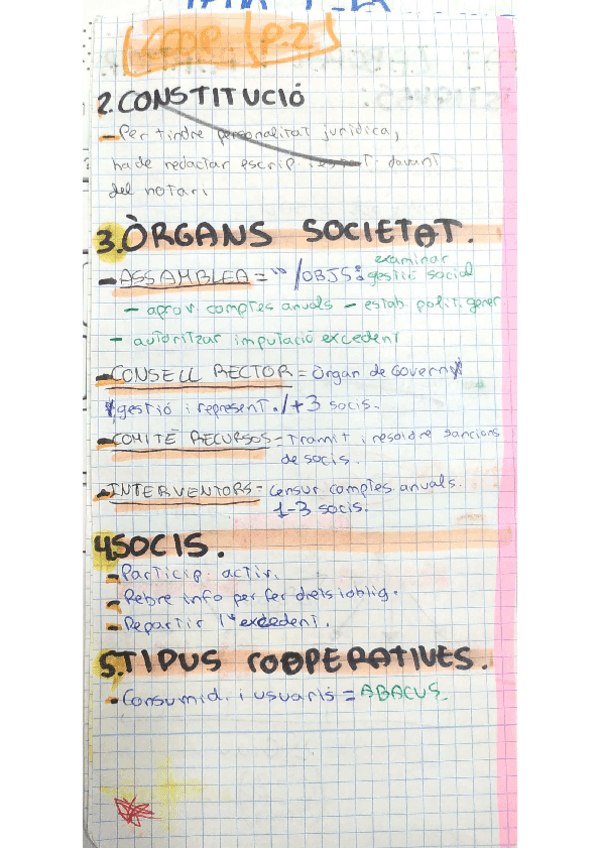 COOP. P.2
2. CONSTITUCIÓ
- Per tindre personalitat jurídica,
ha de redactar escrip. davant
del notari
3. ÒRGANS SOCIETAT.
- ASSAMBLEA = "" /OBJS: examinar
gestió social
- aprov. comptes anuals - estab. polít. gener
- autoritzar imputació excedent
- CONSELL RECTOR = Òrgan de Govern
gestió i represent. / +3 socis.
- COMITÈ RECURSOS = Tramit i resoldre sancions
de socis.
- INTERVENTORS = Censur comptes anuals.
1-3 socis.
4. SOCIS.
- Particip. activ.
- Rebre info per fer drets i oblig.
- Repartir l'excedent.
5. TIPUS COOPERATIVES.
- Consumid. i usuaris = ABACUS.